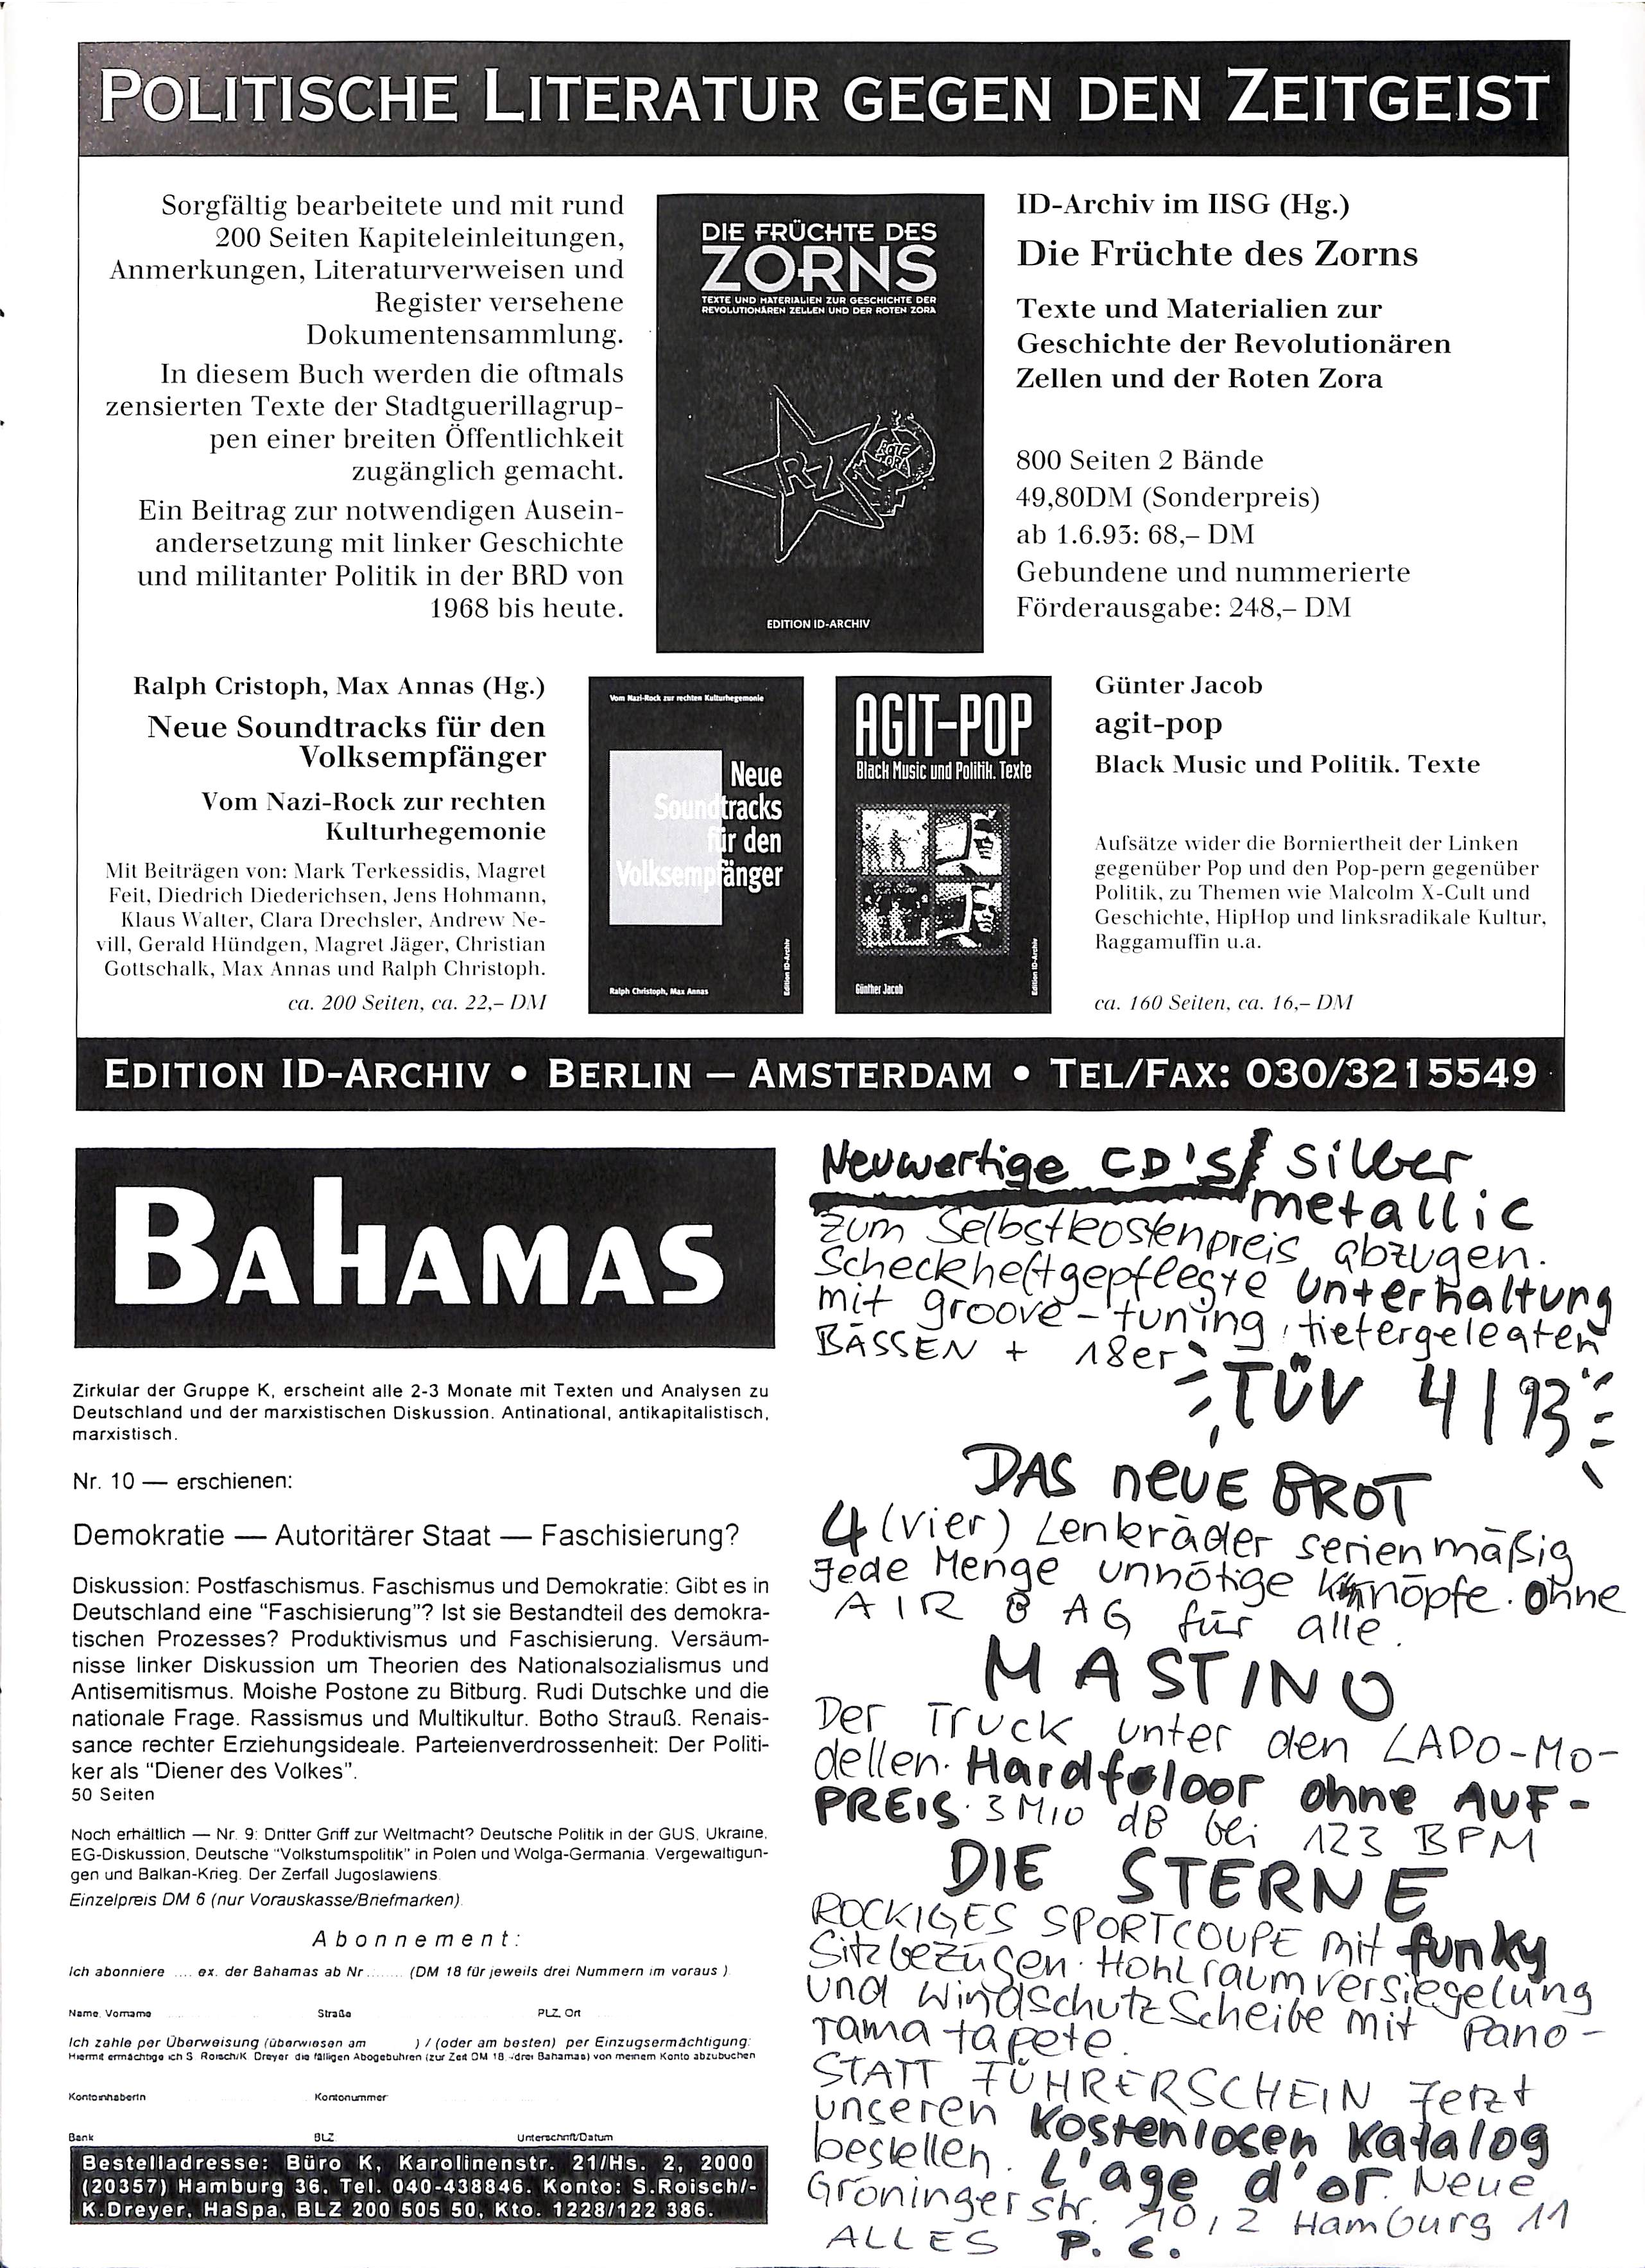 POLITISCHE LITERATUR GEGEN DEN ZEITGEIST
Sorgfältig bearbeitete und mit rund
200 Seiten Kapiteleinleitungen,
Anmerkungen, Literaturverweisen und
Register versehene
Dokumentensammlung.
In diesem Buch werden die oftmals
zensierten Texte der Stadtguerillagrup-
pen einer breiten Öffentlichkeit
zugänglich gemacht.
Ein Beitrag zur notwendigen Ausein-
andersetzung mit linker Geschichte
und militanter Politik in der BRD von
1968 bis heute.
DIE FRÜCHTE DES
ZORNS
TEXTE UND MATERIALIEN ZUR GESCHICHTE DER
REVOLUTIONÄREN ZELLEN UND DER ROTEN ZORA
RZ
ROTE
ZORA
EDITION ID-ARCHIV
ID-Archiv im IISG (Hg.)
Die Früchte des Zorns
Texte und Materialien zur
Geschichte der Revolutionären
Zellen und der Roten Zora
800 Seiten 2 Bände
49,80DM (Sonderpreis)
ab 1.6.93: 68,– DM
Gebundene und nummerierte
Förderausgabe: 248,– DM
Ralph Cristoph, Max Annas (Hg.)
Neue Soundtracks für den
Volksempfänger
Vom Nazi-Rock zur rechten
Kulturhegemonie
Mit Beiträgen von: Mark Terkessidis, Magret
Feit, Diedrich Diederichsen, Jens Hohmann,
Klaus Walter, Clara Drechsler, Andrew Ne-
vill, Gerald Hündgen, Magret Jäger, Christian
Gottschalk, Max Annas und Ralph Christoph.
ca. 200 Seiten, ca. 22,– DM
Vom Nazi-Rock zur rechten Kulturhegemonie
Neue
Soundtracks
für den
Volksempfänger
Ralph Christoph, Max Annas
Edition ID-Archiv
AGIT-POP
Black Music und Politik. Texte
Günther Jacob
Edition ID-Archiv
Günter Jacob
agit-pop
Black Music und Politik. Texte
Aufsätze wider die Borniertheit der Linken
gegenüber Pop und den Pop-pern gegenüber
Politik, zu Themen wie Malcolm X-Cult und
Geschichte, HipHop und linksradikale Kultur,
Raggamuffin u.a.
ca. 160 Seiten, ca. 16,– DM
EDITION ID-ARCHIV • BERLIN — AMSTERDAM • TEL/FAX: 030/3215549
BAHAMAS
Zirkular der Gruppe K, erscheint alle 2-3 Monate mit Texten und Analysen zu
Deutschland und der marxistischen Diskussion. Antinational, antikapitalistisch,
marxistisch.
Nr. 10 — erschienen:
Demokratie — Autoritärer Staat — Faschisierung?
Diskussion: Postfaschismus. Faschismus und Demokratie: Gibt es in
Deutschland eine "Faschisierung"? Ist sie Bestandteil des demokra-
tischen Prozesses? Produktivismus und Faschisierung. Versäum-
nisse linker Diskussion um Theorien des Nationalsozialismus und
Antisemitismus. Moishe Postone zu Bitburg. Rudi Dutschke und die
nationale Frage. Rassismus und Multikultur. Botho Strauß. Renais-
sance rechter Erziehungsideale. Parteienverdrossenheit: Der Politi-
ker als "Diener des Volkes".
50 Seiten
Noch erhältlich — Nr. 9: Dritter Griff zur Weltmacht? Deutsche Politik in der GUS, Ukraine,
EG-Diskussion, Deutsche "Volkstumspolitik" in Polen und Wolga-Germania. Vergewaltigun-
gen und Balkan-Krieg. Der Zerfall Jugoslawiens.
Einzelpreis DM 6 (nur Vorauskasse/Briefmarken).
Abonnement:
Ich abonniere .... ex. der Bahamas ab Nr........ (DM 18 für jeweils drei Nummern im voraus )
Name, Vorname Straße PLZ, Ort
Ich zahle per Überweisung (überwiesen am ) / (oder am besten) per Einzugsermächtigung:
Hiermit ermächtige ich S. Roisch/K. Dreyer die fälligen Abogebühren (zur Zeit DM 18,-/drei Bahamas) von meinem Konto abzubuchen
KontoinhaberIn Kontonummer
Bank BLZ Unterschrift/Datum
Bestelladresse: Büro K, Karolinenstr. 21/Hs. 2, 2000
(20357) Hamburg 36, Tel. 040-438846. Konto: S.Roisch/-
K.Dreyer, HaSpa, BLZ 200 505 50, Kto. 1228/122 386.
Neuwertige CD'S/ silber
metallic
zum Selbstkostenpreis abzugen.
Scheckheftgepflegte Unterhaltung
mit groove-tuning, tiefergelegten
BÄSSEN + 18er
TÜV 4/93
DAS neUE BROT
4 (vier) Lenkräder serienmäßig
Jede Menge unnötige Knöpfe. Ohne
AIR BAG für alle.
MASTINO
Der Truck unter den LADO-Mo-
dellen. Hardfoloor ohne AUF-
PREIS. 3 MIO dB bei 123 BPM
DIE STERNE
ROCKIGES SPORTCOUPE mit funky
Sitzbezügen. Hohlraumversiegelung
und Windschutzscheibe mit Pano-
rama tapete.
STATT FÜHRERSCHEIN Jetzt
unseren kostenlosen Katalog
bestellen. L'age d'or. Neue
Gröningerstr. 10, 2 Hamburg 11
ALLES P.C.